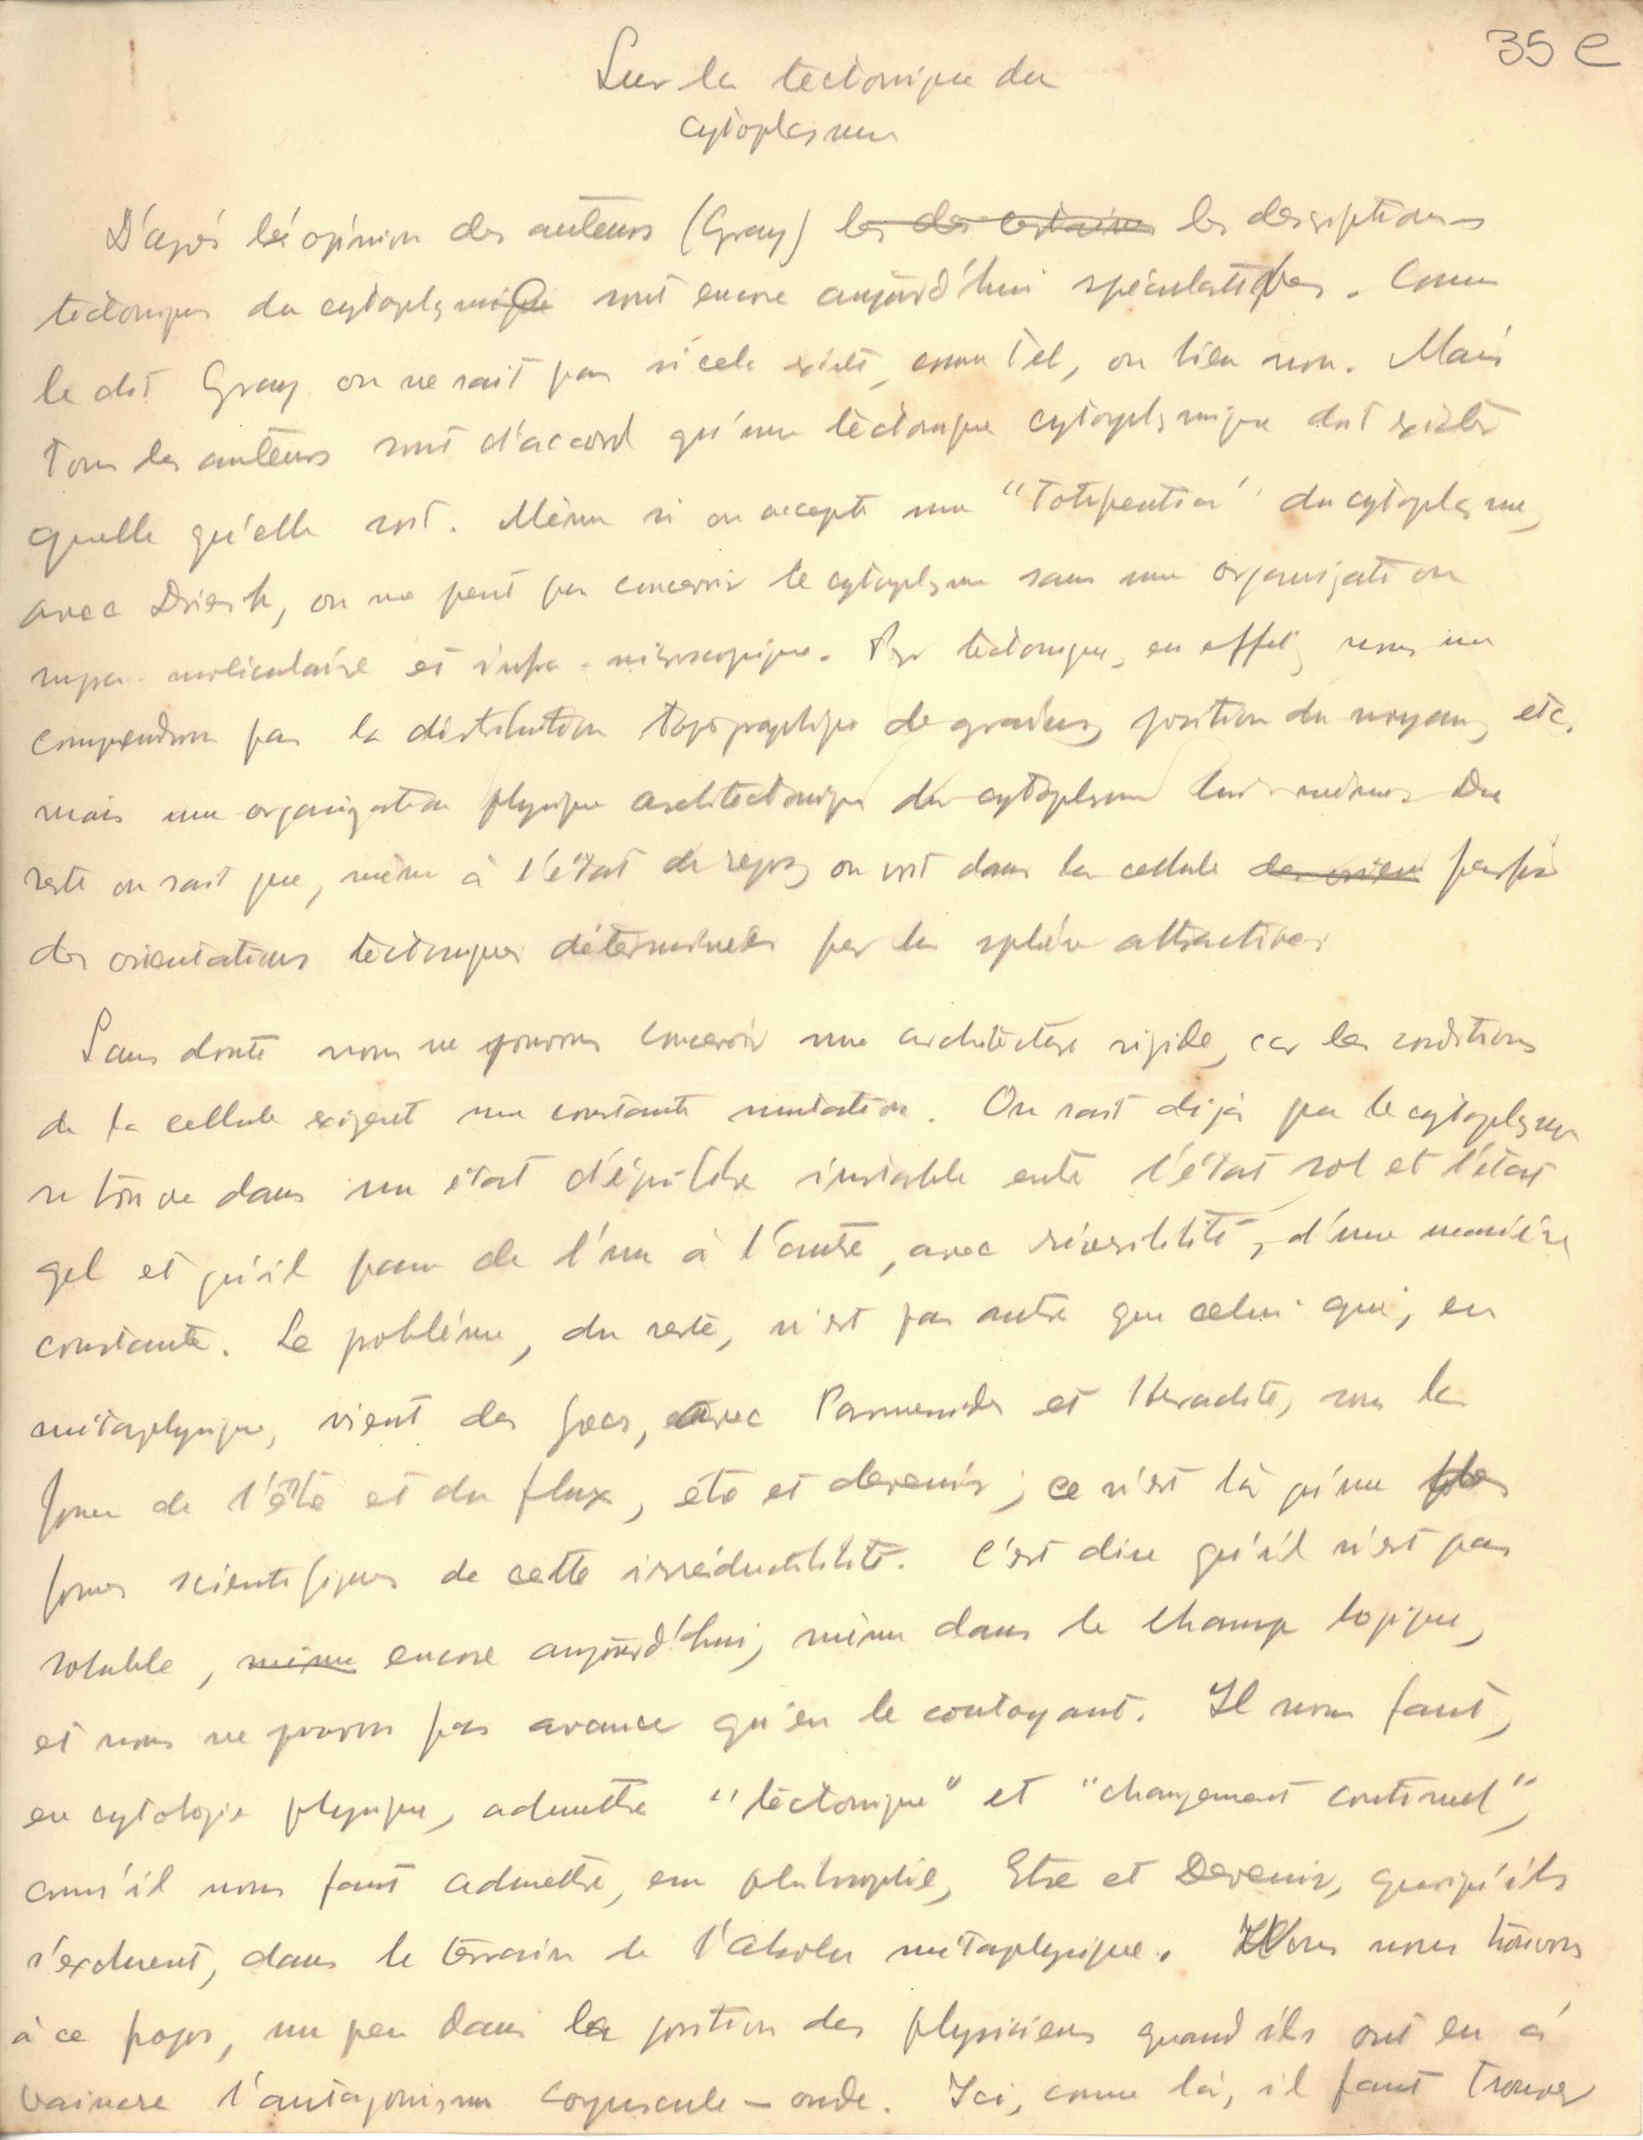 35 e
Sur la tectonique du
cytoplasme
D'après l'opinion des auteurs (Gray) les des certaines les descriptions
tectoniques du cytoplasmique sont encore aujourd'hui spéculatives. Comme
le dit Gray on ne sait pas si cela existe, comme tel, ou bien non. Mais
tous les auteurs sont d'accord qu'une tectonique cytoplasmique doit exister
quelle qu'elle soit. Même si on accepte une "Totipentia" du cytoplasme,
avec Driesch, on ne peut pas concevoir le cytoplasme sans une organisation
supra-moléculaire et infra-microscopique. Par tectonique, en effet, nous ne
comprendrons pas la distribution topographique de grains, position du noyau, etc.
mais une organization physique architectonique du cytoplasme lui-même. Du
reste on sait que, même à l'état de repos, on voit dans la cellule des orien parfois
des orientations tectoniques déterminées par la sphère attractive.
Sans doute nous ne pouvons concevoir une architecture rigide, car les conditions
de la cellule exigent une constante mutation. On sait déjà que le cytoplasme
se trouve dans un état d'équilibre instable entre l'état sol et l'état
gel et qu'il passe de l'un à l'autre, avec réversibilité, d'une manière
constante. Le problème, du reste, n'est pas autre que celui qui, en
métaphysique, vient des Grecs, avec Parmenides et Heraclite, sous la
forme de l'être et du flux, etre et devenir; ce n'est là qu'une
formes scientifiques de cette irréductibilité. C'est dire qu'il n'est pas
soluble, même encore aujourd'hui, même dans le champ logique,
et nous ne pouvons pas avancer qu'en le contoyant. Il nous faut,
en cytologie physique, admettre "tectonique" et "changement continuel",
comm'il nous faut admettre, en philosophie, Etre et Devenir, quoiqu'ils
s'excluent, dans le terrain de l'absolu métaphysique. Nous nous trouvons
à ce propos, un peu dans la position des physiciens quand ils ont eu à
vaincre l'antagonisme corpuscule - onde. Ici, comme là, il faut trouver